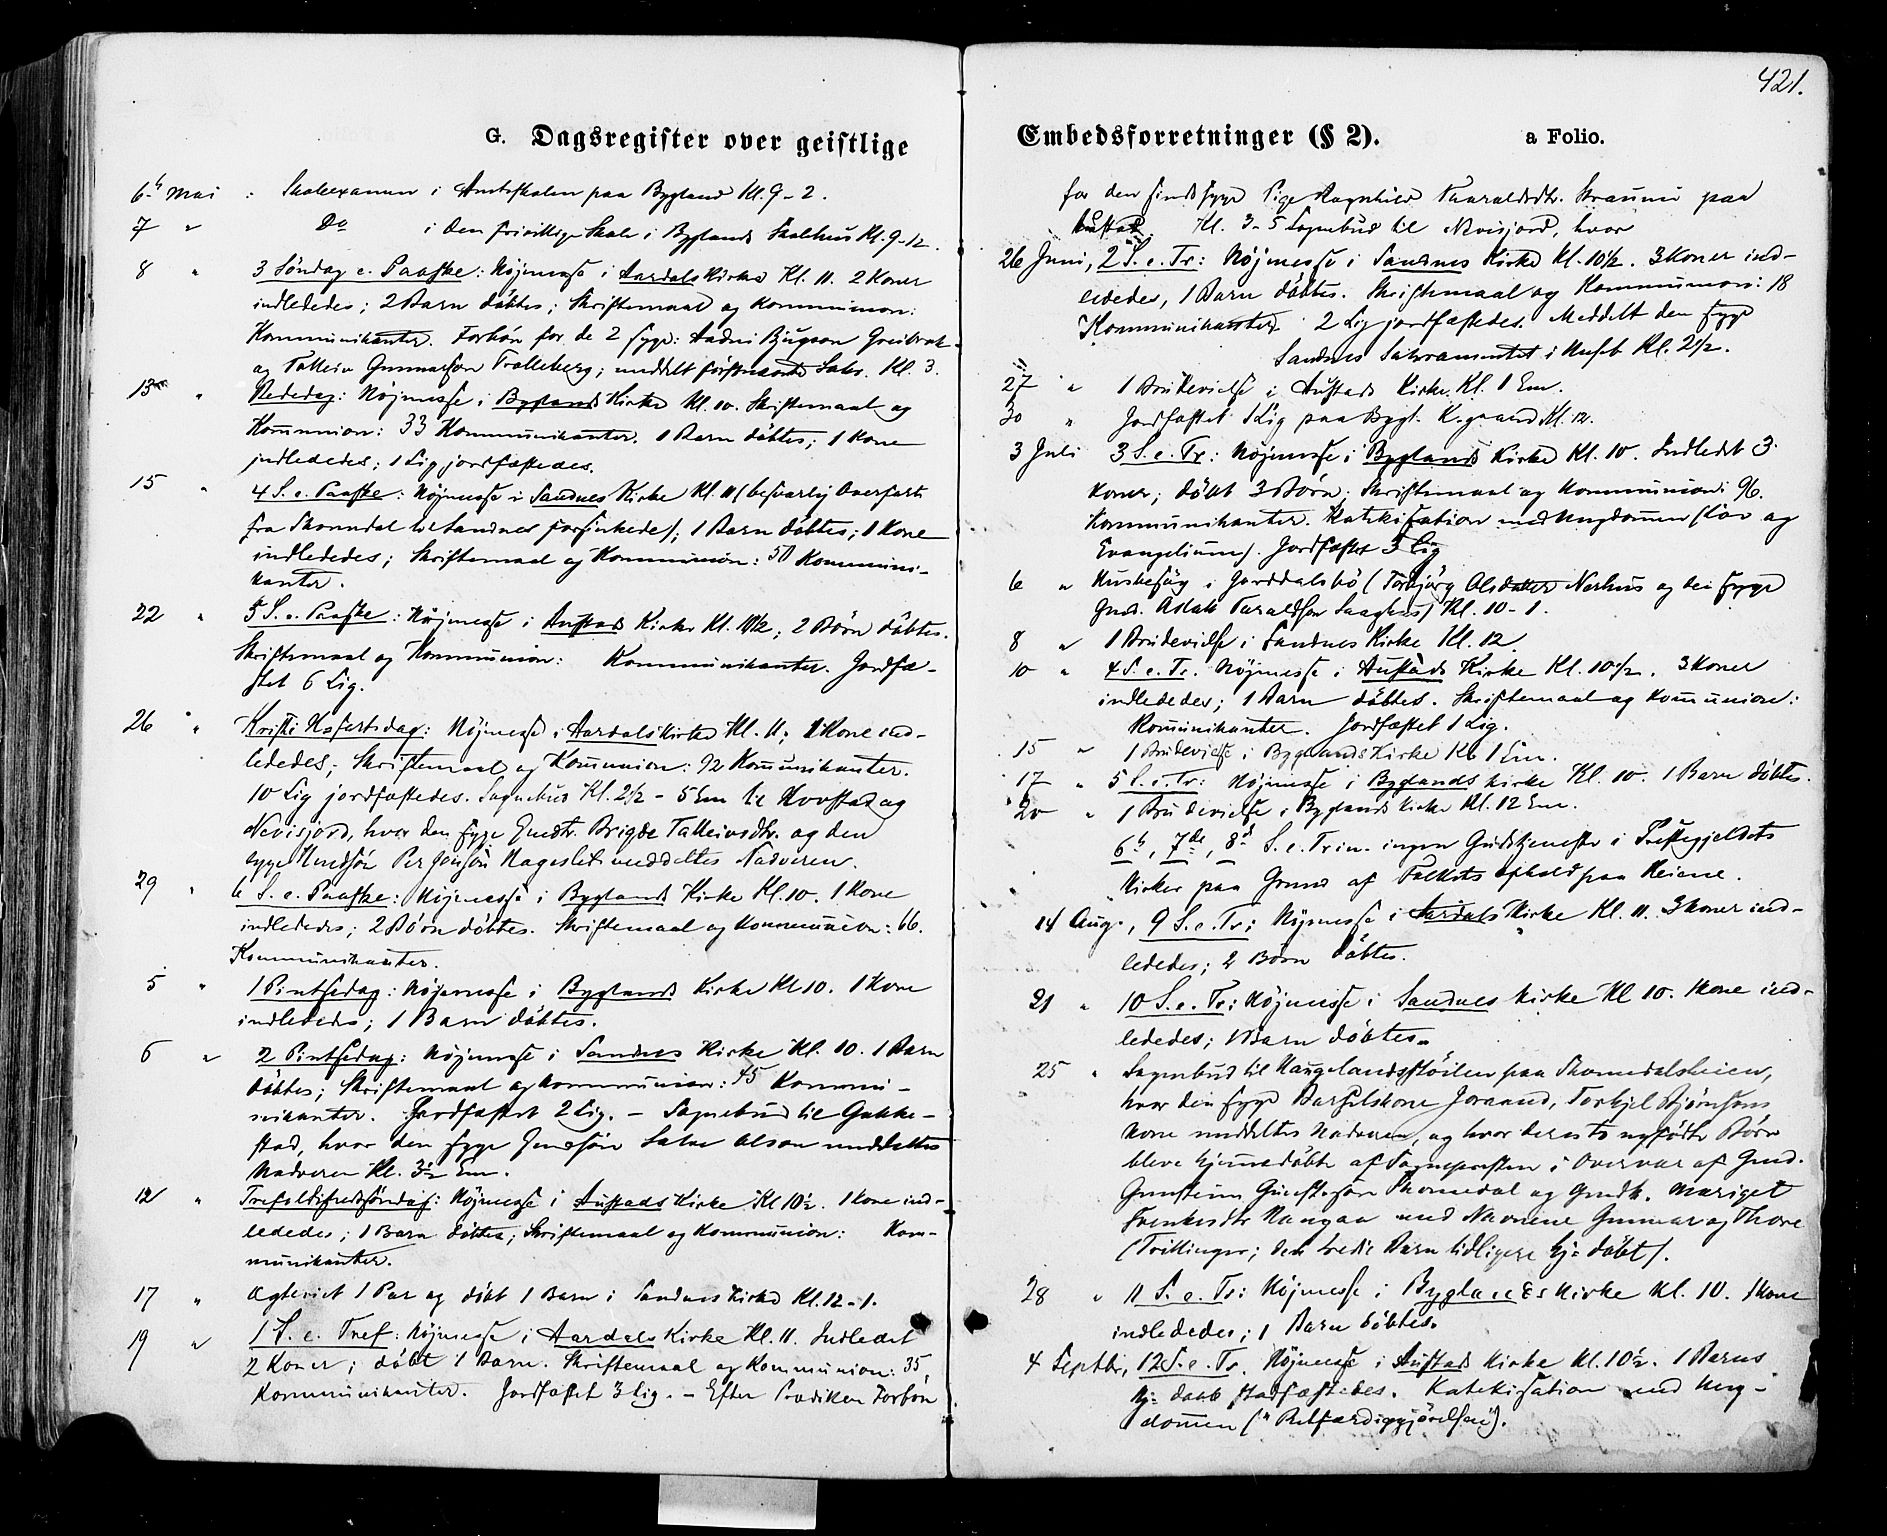 421.
G. Dagsregister over geistlige
6te Mai : Skoleexamen i Amtsskolen paa Bygland Kl. 9-2.
7 " Do i den frivillige Skole i Byglands Skolhus Kl. 9-12.
8 " 3 Söndag e. Paaske: Højmesse i Aardals Kirke Kl. 11. 2 Koner
indlededes; 2 Barn döbtes; Skriftemaal og Kommunion:
Kommunikanter. Forbön for de 2 syge: Aadni Bjugson
og Talleiv Gunnarson Trolleberg; meddelt förstnævnte Sakr. Kl. 3.
13 " Bededag: Højmesse i Byglands Kirke Kl. 10. Skriftemaal og
Kommunion: 33 Kommunikanter. 1 Barn döbtes; 1 Kone
indlededes; 1 Lig jordfæstedes.
15 " 4 S. e. Paaske: Højmesse i Sandnes Kirke Kl. 11 (besværlig Overfart
fra til Sandnes forsinkede); 1 Barn döbtes; 1 Kone
indlededes; Skriftemaal og Kommunion: 50 Kommuni-
kanter.
22 " 5 S. e. Paaske: Højmesse i Austads Kirke Kl. 10 1/2; 2 Börn döbtes.
Skriftemaal og Kommunion: Kommunikanter. Jordfæ-
stet 6 Lig.
26 " Kristi Hjfartsdag: Højmesse i Aardals Kirke Kl. 11; 1 Kone ind-
lededes; Skriftemaal og Kommunion: 92 Kommunikanter.
10 Lig jordfæstedes. Sognebud Kl. 2 1/2 - 5 Em til og
Nevisjord, hvor den syge Gmdtr. Brigde Talleivsdtr. og den
syge Per Jonson Hageslet meddeltes Nadveren.
29 " 6 S. e. Paaske: Højmesse i Byglands Kirke Kl. 10. 1 Kone
indlededes; 2 Börn döbtes. Skriftemaal og Kommunion: 66.
Kommunikanter.
5 " 1 Pintsedag: Højmesse i Byglands Kirke Kl 10. 1 Kone
indlededes; 1 Barn döbtes.
6 " 2 Pintsedag: Højmesse i Sandnes Kirke Kl. 10. 1 Barn
döbtes; Skriftemaal og Kommunion: 45 Kommu-
nikanter. Jordfæstet 2 Lig. - Sognebud til Gakke-
stad, hvor den syge Salve Olson meddeltes
Nadveren Kl. 3 1/2 Em.
12 " Trefoldighedssöndag: Højmesse i Austads Kirke Kl 10 1/2. 1 Kone ind-
lededes; 1 Barn döbtes; Skriftemaal og Kommunion: Kom-
munikanter.
17 " Ægteviet 1 Par og döbt 1 Barn i Sandnes Kirke Kl. 12-1.
19 " 1 S. e. Tref: Højmesse i Aardals Kirke Kl. 11. Indledet
2 Koner; döbt 1 Barn. Skriftemaal og Kommunion: 35
Kommunikanter. Jordfæstet 3 Lig. - Efter Prædiken Forbön
Embedsforretninger (§ 2). a Folio.
for den sindssyge Pige Ragnhild Taaraldsdtr. Straume paa
Austad. Kl. 3-5 Sognebud til Nevisjord, hvor
26 Juni, 2 S. e. Tr: Højmesse i Sandnes Kirke Kl. 10 1/2. 3 Koner ind-
lededes, 1 Barn döbtes. Skriftemaal og Kommunion: 18
Kommunikanter. 2 Lig jordfæstedes. Meddelt den syge
Sandnes Sakramentet i Kl. 2 1/2.
27 " 1 Brudevielse i Austads Kirke Kl. 1 Em.
30 " Jordfæstet 1 Lig paa Bygl. K.gaard Kl. 12.
3 Juli 3 S. e. Tr: Højmesse i Byglands Kirke Kl. 10. Indledet 3
Koner; döbt 3 Börn; Skriftemaal og Kommunion: 96.
Kommunikanter. Katekisation med Ungdommen (Lov og
Evangelium). Jordfæstet 3 Lig
6 " Husbesög i Jorddalsbö (Torbjörg Olsdatter Nerhus og den syge
Gmd. Aslak Taraldsen Saaghus) Kl. 10-1.
8 " 1 Brudevielse i Sandnes Kirke Kl. 12.
10 " 4 S. e. Tr. Højmesse i Austads Kirke Kl. 10 1/2. 3 Koner
indlededes; 1 Barn döbtes. Skriftemaal og Kommunion:
Kommunikanter. Jordfæstet 1 Lig.
15 " 1 Brudevielse i Byglands Kirke Kl 1 Em.
17 " 5 S. e. Tr: Højmesse i Byglands Kirke Kl. 10. 1 Barn döbtes.
20 " 1 Brudevielse i Byglands Kirke Kl. 12 Em.
6te, 7de, 8de S. e. Trin. ingen Gudstjeneste i Præstegjeldets
Kirker paa Grund af Folkets Ophold paa Heiene.
14 Aug., 9 S. e. Tr: Højmesse i Aardals Kirke Kl. 11. 3 Koner ind-
lededes; 2 Börn döbtes.
21 " 10 S. e. Tr: Højmesse i Sandnes Kirke Kl 10. 1 Kone ind-
lededes; 1 Barn döbtes.
25 " Sognebud til Haugelandsstöilen paa Skomedalsheien,
hvor den syge Barselskone Joraand, Torkjel Bjørnsons
Kone meddeltes Nadveren, og hvor derests nyfödte Börn
bleve hjemmedöbte af Sognepresten i Overvær af Gmd.
Gunsteinson Skomedal og Gmdk. Margit
med Navnene Gunnar og Thore
(Trillinger; det tredie Barn tidligere hj= döbt).
28 " 11 S. e. Tr: Højmesse i Byglands Kirke Kl. 10. 1 Kone
indlededes; 1 Barn döbtes.
4 Septbr, 12 S. e. Tr. Højmesse i Austads Kirke Kl. 10 1/2. 1 Barns
hj= daab stadfæstedes. Katekisation med Ung-
dommen ("Retfærdiggjörelsen").